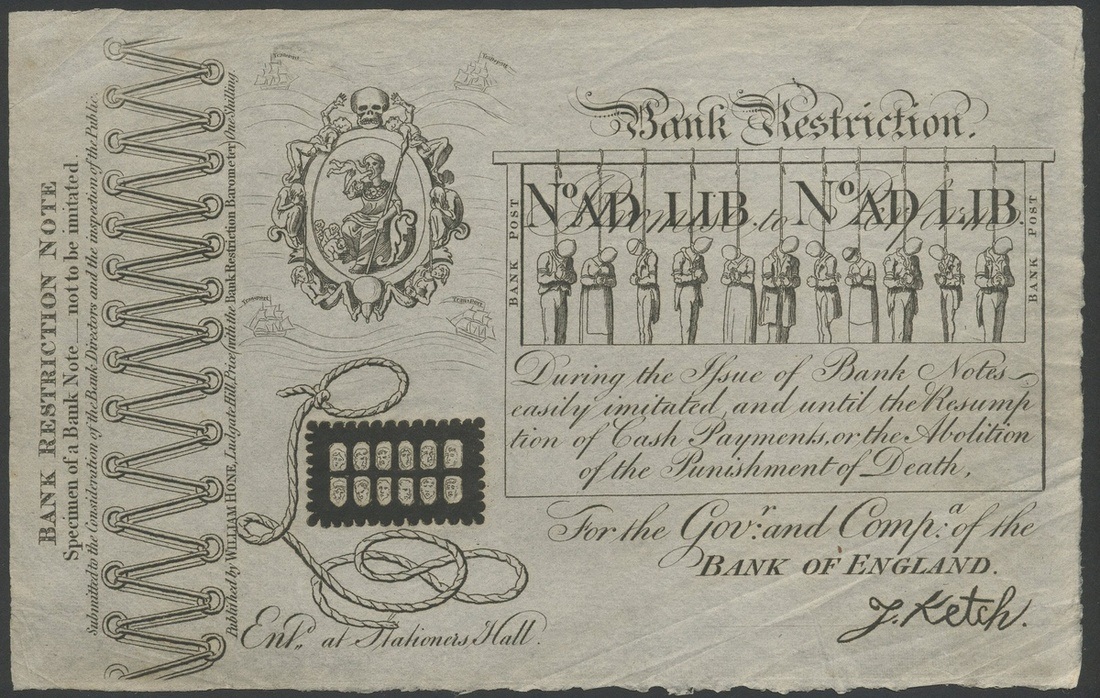 BANK RESTRICTION NOTE
Specimen of a Bank Note__not to be imitated.
Submitted to the Consideration of the Bank Directors and the inspection of the Public
Published by WILLIAM HONE, Ludgate Hill, Price (with the Bank Restriction Barometer) One Shilling.
Transport
Transport
Transport
Entd. at Stationers Hall.
Bank Restriction.
BANK POST
No AD LIB No AD LIB
Promise to Perform
BANK POST
During the Issue of Bank Notes
easily imitated, and until the Resump
tion of Cash Payments, or the Abolition
of the Punishment of Death,
For the Govr. and Compa. of the
BANK OF ENGLAND.
J. Ketch.